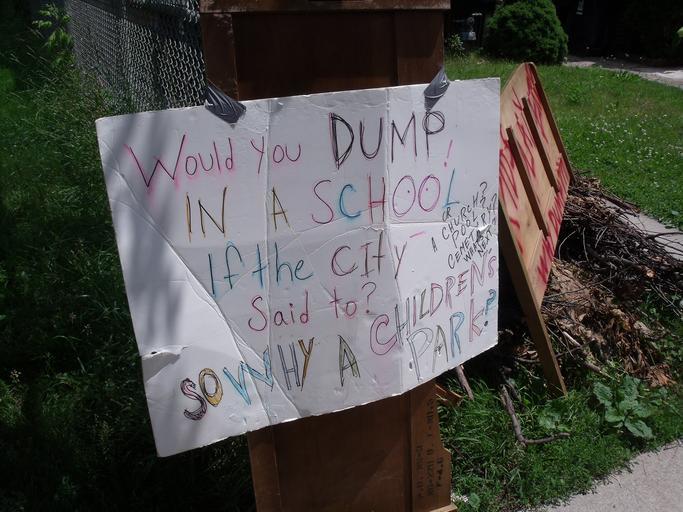 Would you DUMP!
IN A SCHOOL
If the CITY-
Said to?
OR
A CHURCH?
POOL?
NEXT?
SO WHY A CHILDRENS
PARK?